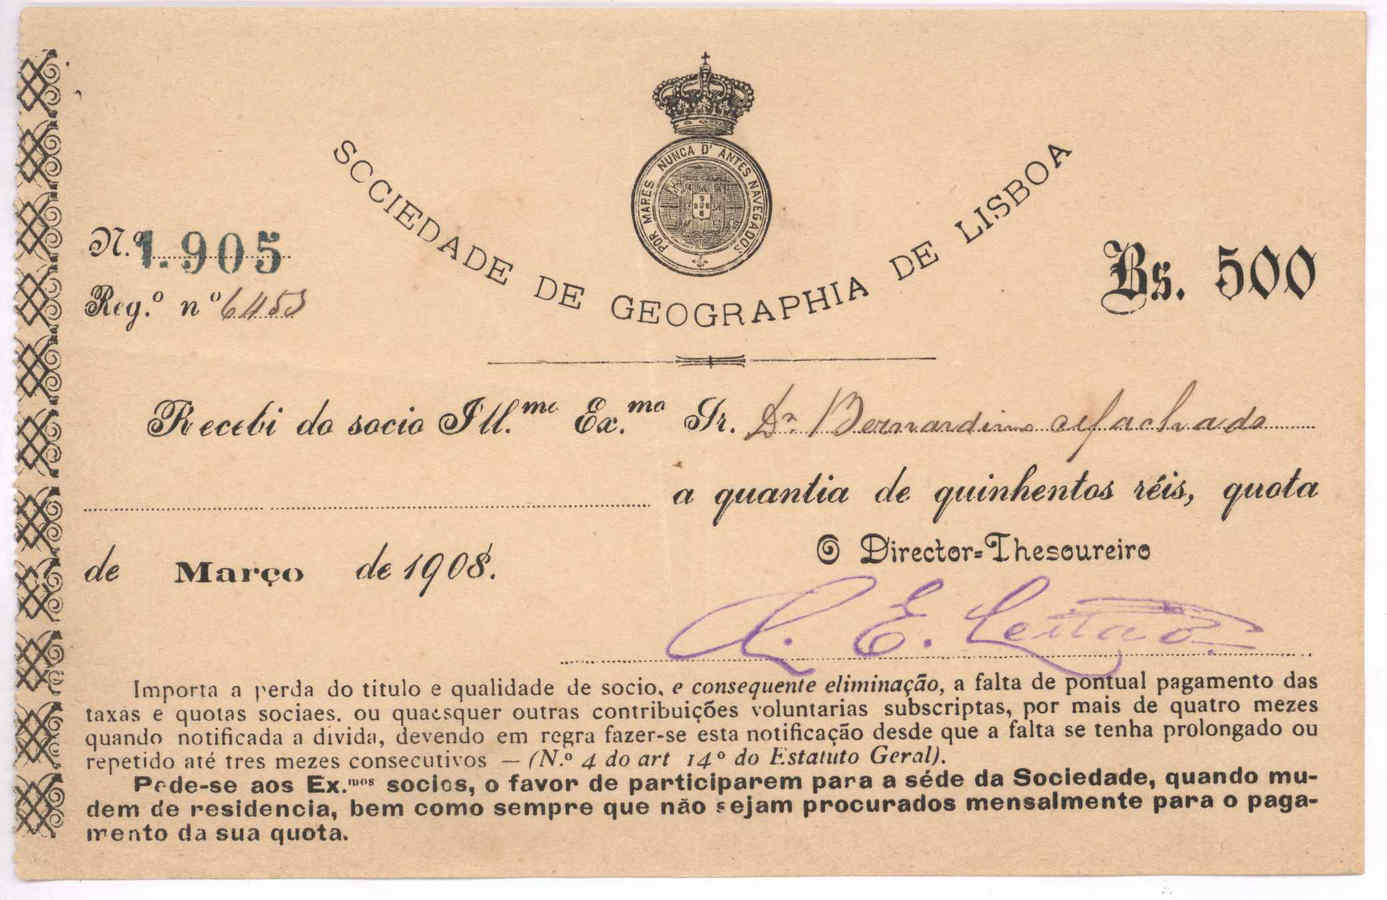 POR MARES NUNCA D'ANTES NAVEGADOS
SOCIEDADE DE GEOGRAPHIA DE LISBOA
N.º 1.905
Reg.º nº 6453
Rs. 500
Recebi do socio Ill.mo Ex.mo Sr. Dr. Bernardino Machado
a quantia de quinhentos réis, quota
de Março de 1908.
O Director=Thesoureiro
A. E. Leitão
Importa a perda do titulo e qualidade de socio, e consequente eliminação, a falta de pontual pagamento das
taxas e quotas sociaes. ou quaesquer outras contribuições voluntarias subscriptas, por mais de quatro mezes
quando notificada a divida, devendo em regra fazer-se esta notificação desde que a falta se tenha prolongado ou
repetido até tres mezes consecutivos — (N.º 4 do art 14º do Estatuto Geral).
Pede-se aos Ex.mos socios, o favor de participarem para a séde da Sociedade, quando mu-
dem de residencia, bem como sempre que não sejam procurados mensalmente para o paga-
mento da sua quota.